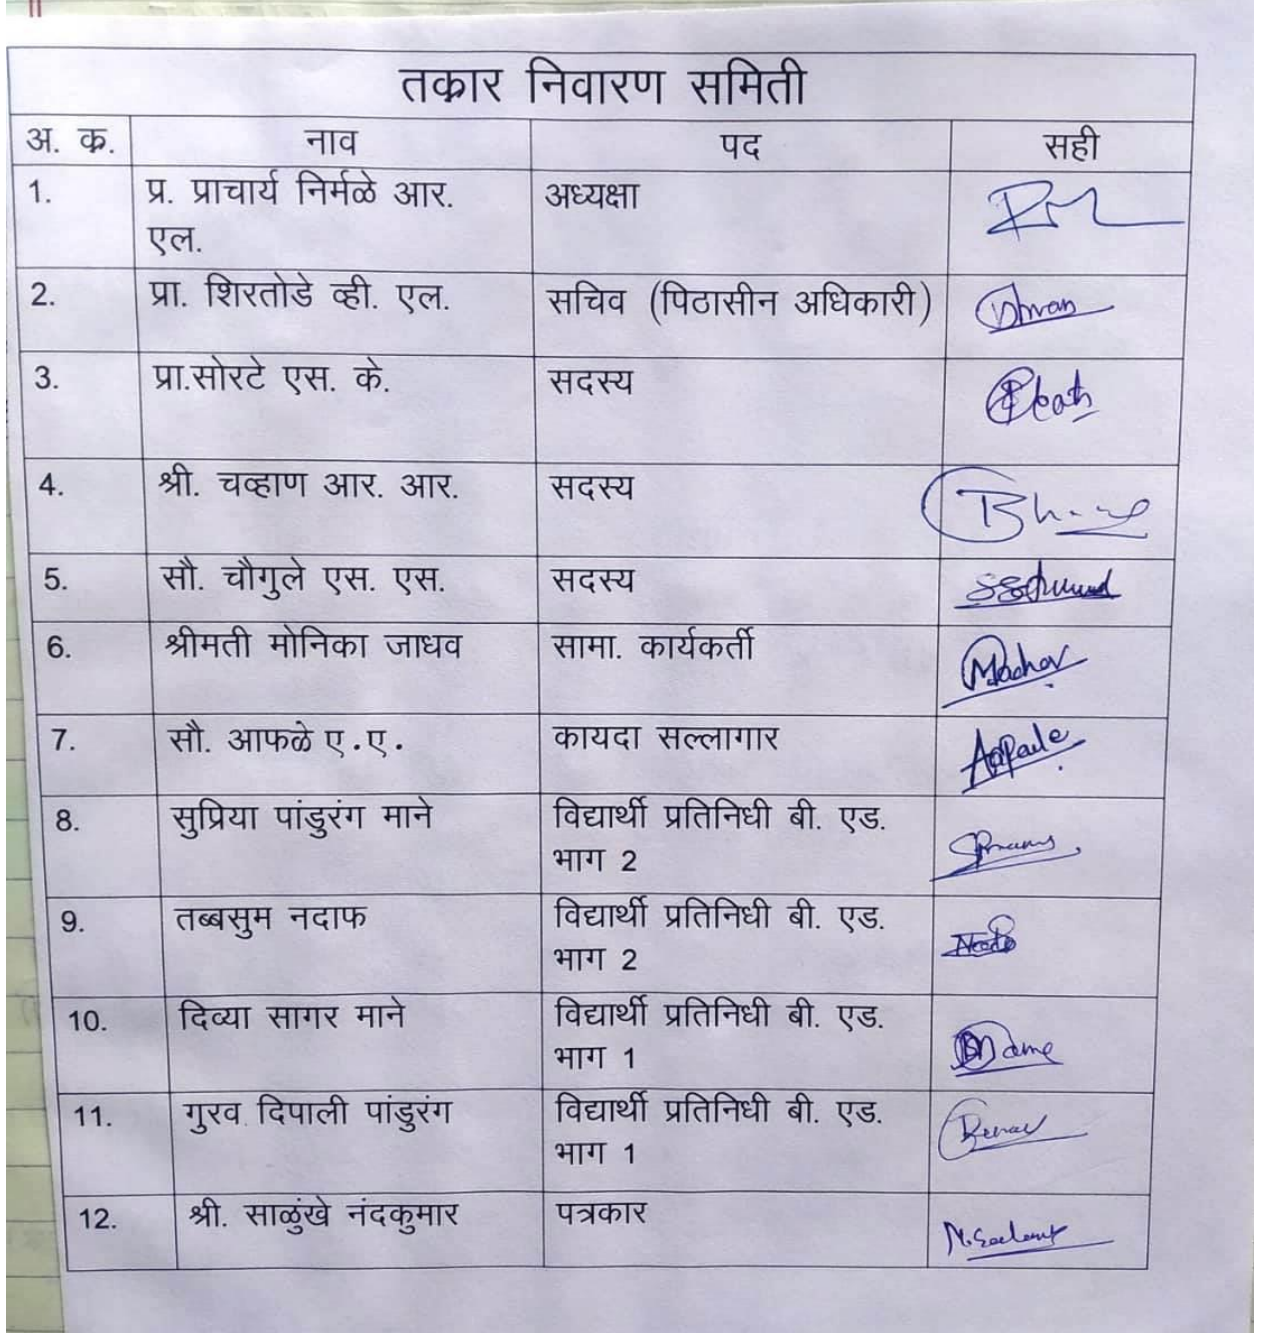 तक्रार निवारण समिती
अ. क्र. नाव पद सही
1. प्र. प्राचार्य निर्मळे आर. अध्यक्षा
एल.
2. प्रा. शिरतोडे व्ही. एल. सचिव (पिठासीन अधिकारी)
3. प्रा.सोरटे एस. के. सदस्य
4. श्री. चव्हाण आर. आर. सदस्य
5. सौ. चौगुले एस. एस. सदस्य
6. श्रीमती मोनिका जाधव सामा. कार्यकर्ती
7. सौ. आफळे ए.ए. कायदा सल्लागार
8. सुप्रिया पांडुरंग माने विद्यार्थी प्रतिनिधी बी. एड.
भाग 2
9. तब्बसुम नदाफ विद्यार्थी प्रतिनिधी बी. एड.
भाग 2
10. दिव्या सागर माने विद्यार्थी प्रतिनिधी बी. एड.
भाग 1
11. गुरव दिपाली पांडुरंग विद्यार्थी प्रतिनिधी बी. एड.
भाग 1
12. श्री. साळुंखे नंदकुमार पत्रकार